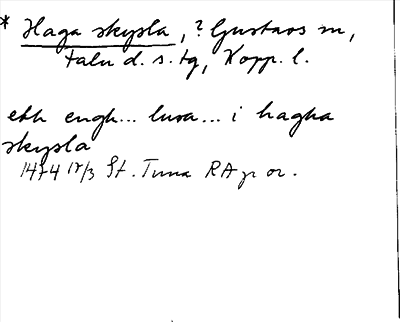 * Haga skysla, ? Gustavs sn,
Falu d. s. tg, Kopp. l.
eth engh... lwsa... i hagha
skysla
1474 17/3 St. Tuna RA p or.